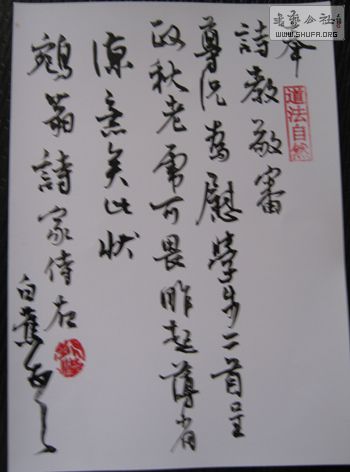 奉
詩教敬審
尊况為慰學步二首呈
政秋老虎可畏昨起薄有
凉意矣比狀
鶴翁詩家侍右
白蕉
道法自然
書法公社
WWW.SHUFA.ORG